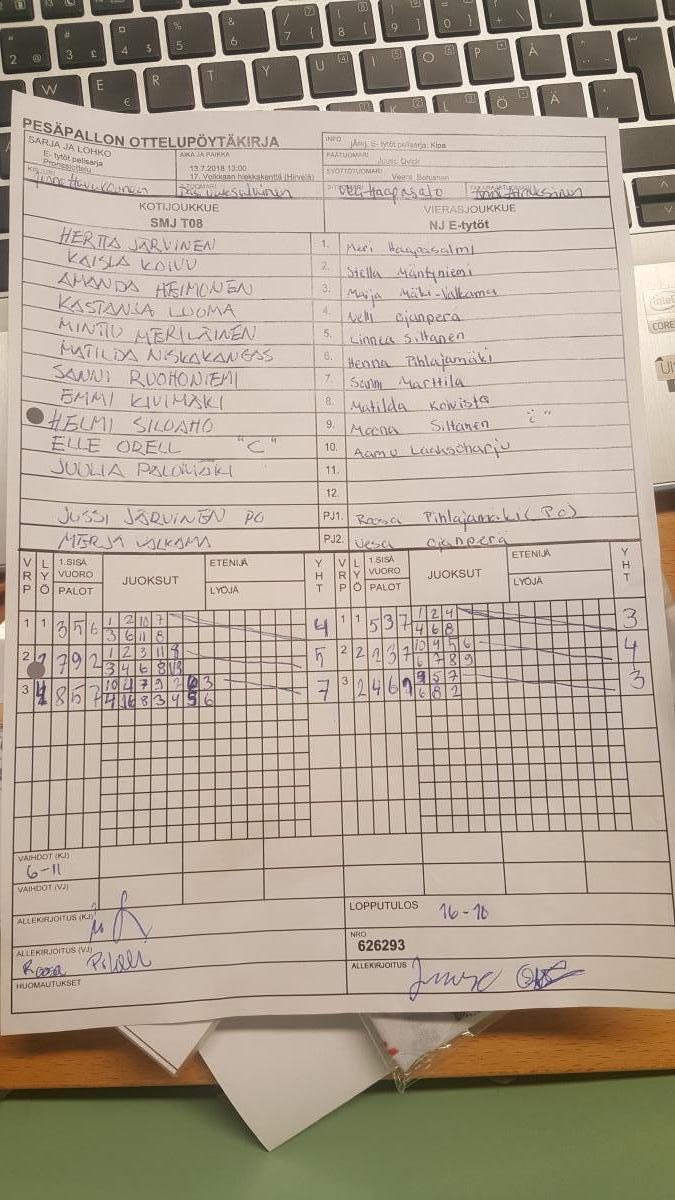 PESÄPALLON OTTELUPÖYTÄKIRJA
SARJA JA LOHKO
E- tytöt pelisarja
Pronssiottelu
AIKA JA PAIKKA
13.7.2018 13:00
17. Voikkaan hiekkakenttä (Hirvelä)
INFO
E- tytöt pelisarja: Kipa
PÄÄTUOMARI
SYÖTTÖTUOMARI
Veera
Veli Haapasalo
KOTIJOUKKUE
SMJ T08
VIERASJOUKKUE
NJ E-tytöt
HERTTA JÄRVINEN 1. Meri Haapasalmi
KAISLA KOIVU 2. Stella Mäntyniemi
AMANDA HEIMONEN 3. Maija Mäki-Valkama
KASTANJA LUOMA 4. Nelli Ojanperä
MINTTU MERILÄINEN 5. Linnea Siltanen
MATILDA NISKAKANGAS 6. Henna Pihlajamäki
SANNI RUOHONIEMI 7. Sanni Marttila
EMMI KIVIMÄKI 8. Matilda Koivisto
HELMI SILOAHO 9. Moona Siltanen
ELLE ORELL "C" 10. Aamu Laaksoharju
JUULIA PALOMÄKI 11.
12.
JUSSI JÄRVINEN PJ1. Roosa Pihlajamäki
MERJA VALKAMA PJ2. Vesa Ojanperä
VRP LYÖ 1.SISÄ VUORO PALOT JUOKSUT ETENIJÄ LYÖJÄ YHT VRP LYÖ 1.SISÄ VUORO PALOT JUOKSUT ETENIJÄ LYÖJÄ YHT
1 1 3 5 6 1 2 10 7 4 1 1 5 3 7 1 2 4 3
3 6 11 8 4 6 8
2 7 9 2 1 2 3 11 8 5 2 2 2 3 7 10 4 5 6 4
3 4 6 8 6 7 8 9
3 8 5 7 10 4 7 9 2 3 7 3 2 4 6 9 5 7 3
8 3 4 5 6 6 8 2
VAIHDOT (KJ)
6-11
VAIHDOT (VJ)
ALLEKIRJOITUS (KJ)
LOPPUTULOS 16-10
ALLEKIRJOITUS (VJ)
Roosa
NRO
626293
ALLEKIRJOITUS
HUOMAUTUKSET